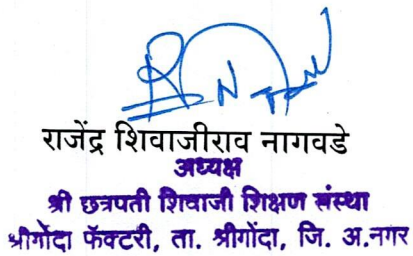 राजेंद्र शिवाजीराव नागवडे
अध्यक्ष
श्री छत्रपती शिवाजी शिक्षण संस्था
श्रीगोंदा फॅक्टरी, ता. श्रीगोंदा, जि. अ.नगर